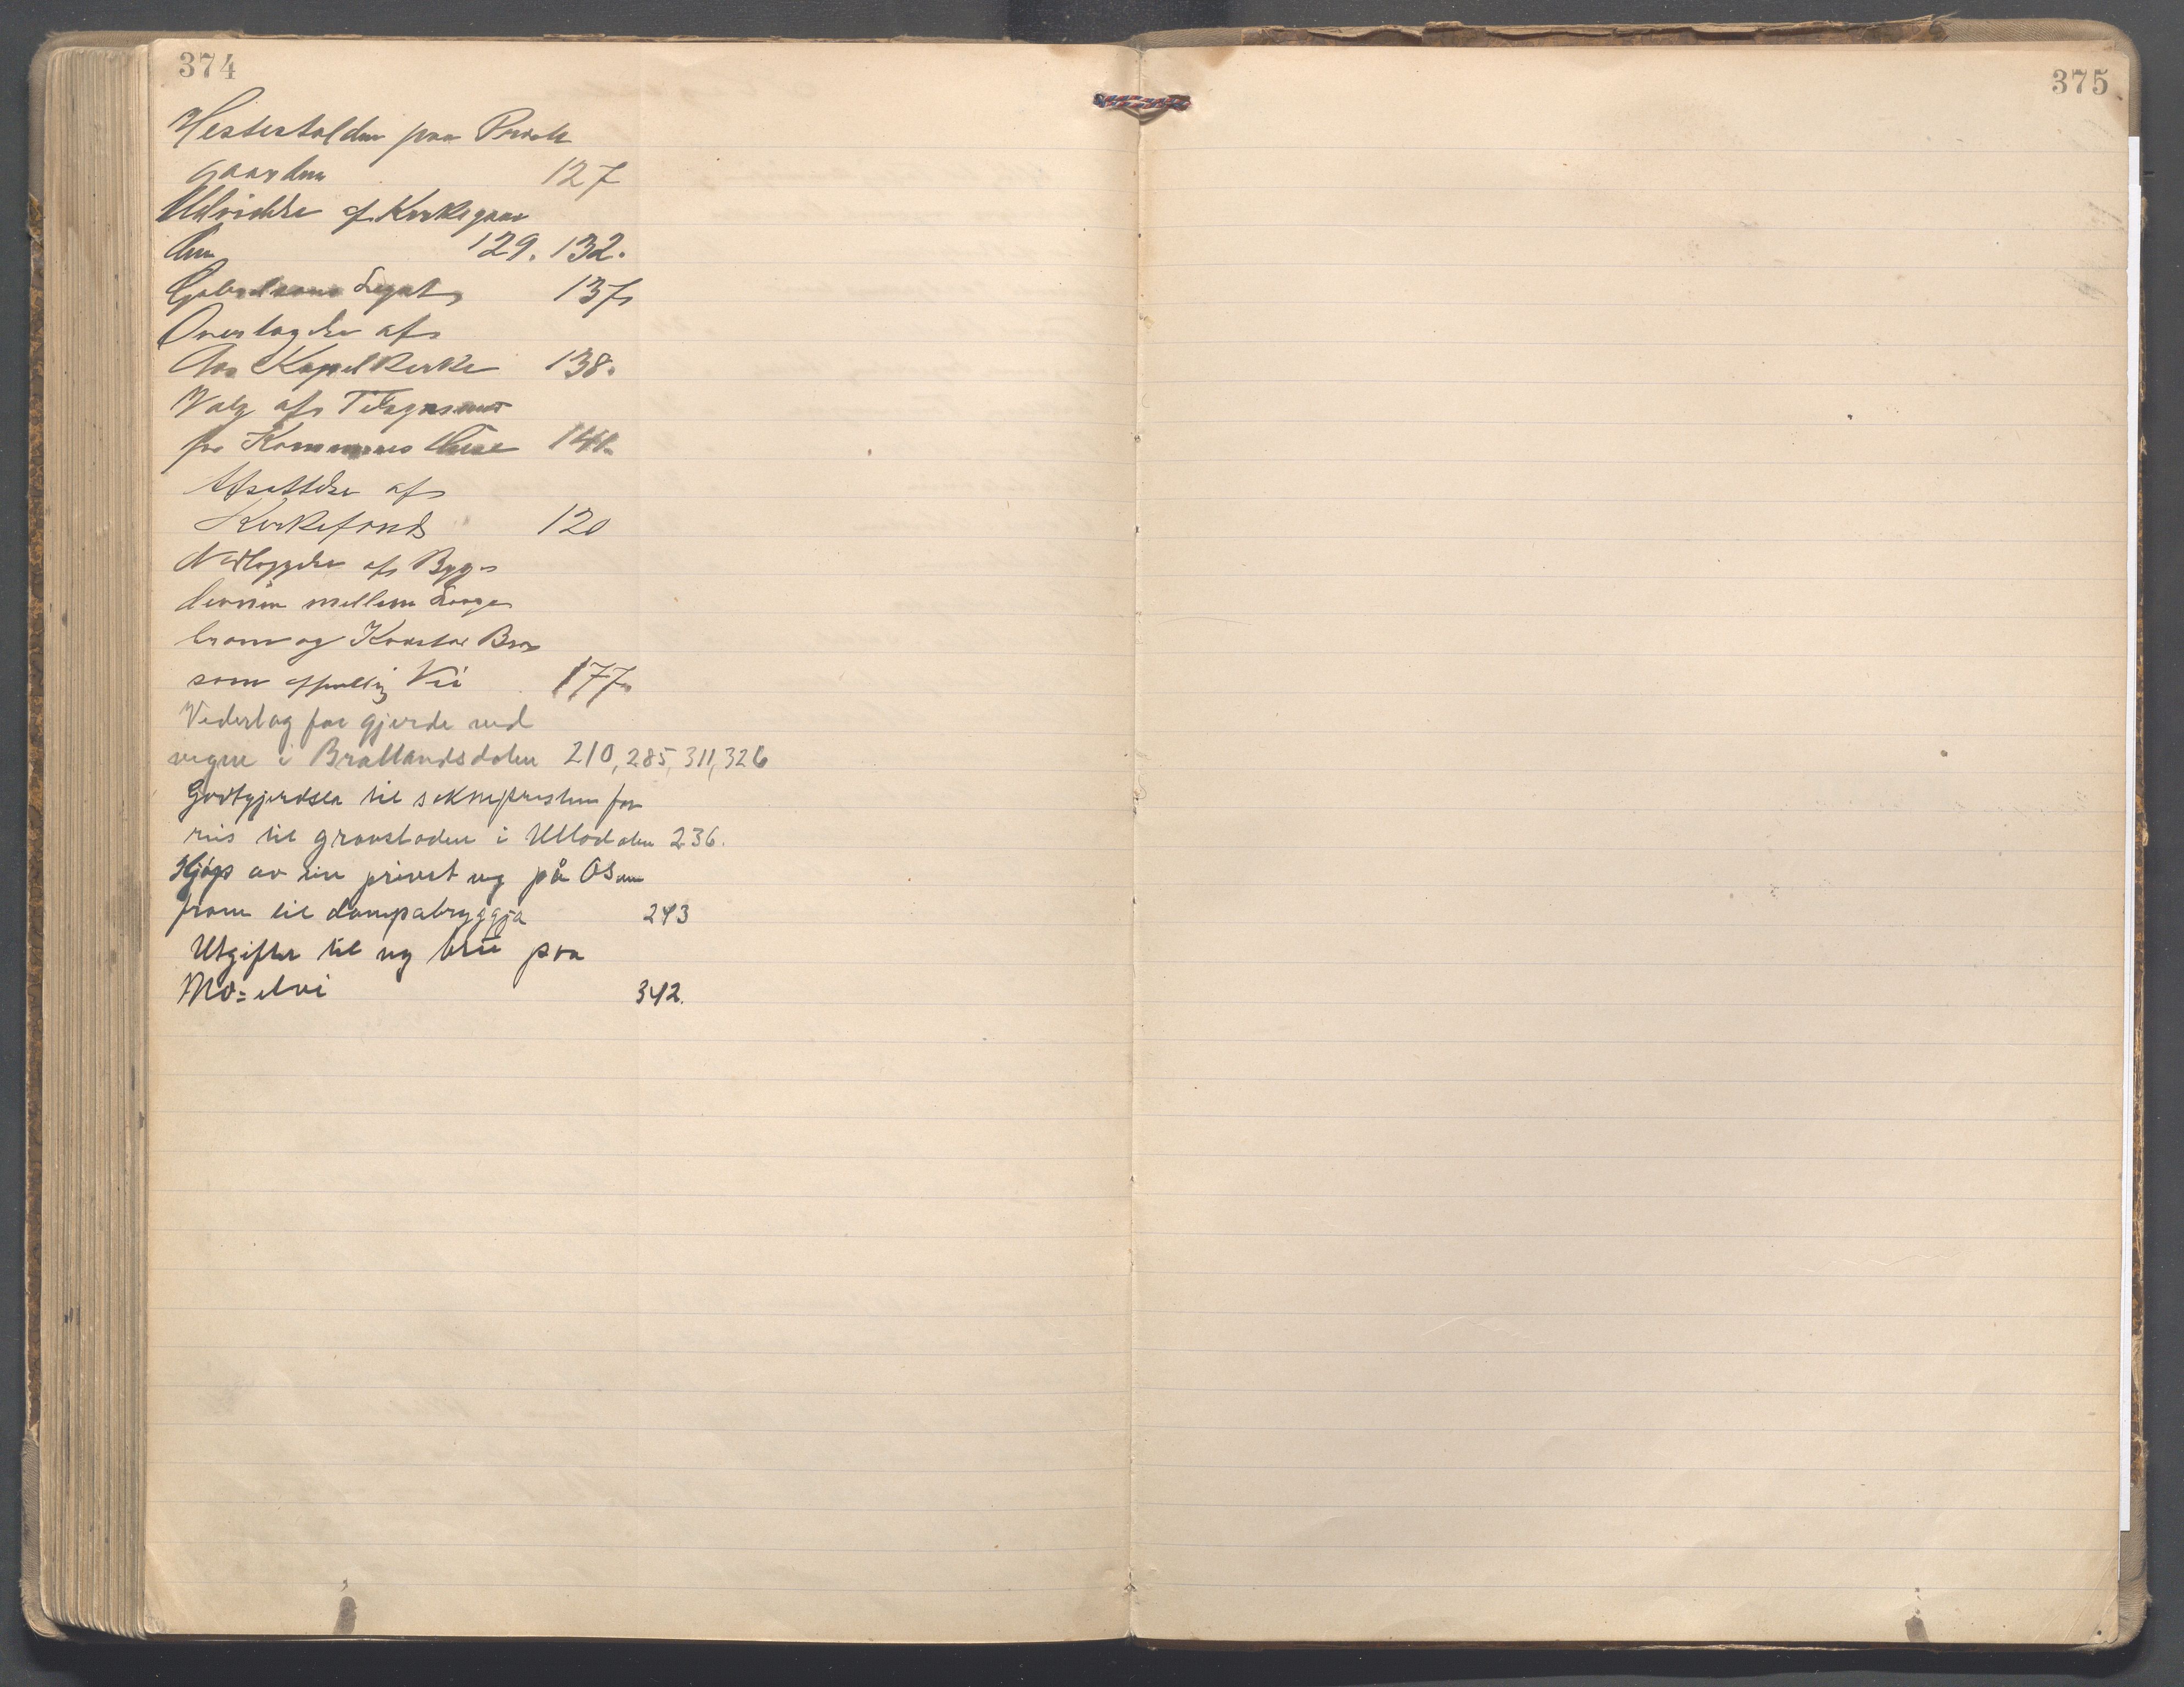 374
375
Hestestalden paa Præste
gaarden 127
Udvidelse af Kirkegaar
den 129. 132.
Gabrielsens Legat 137
Overtagelse af
Aas Kapelkirke 138.
Valg af Tilsynsmænd
for Kommunes Huse 141.
Afsættelse af
Kirkefonds 120
Nedlæggelse af Byg-
deveien mellem
og Kvæstad Bro
som offentlig Vei 177
Vederlag for gjerde ved
vegen i Bratlandsdalen 210, 285, 311, 326
Godtgjerdsla til soknepresten for
til gravstaden i 236.
Kjøp av ein privat veg på Osen
fram til dampabryggja 243
Utgifter til ny bru paa
Mo-elvi 342.